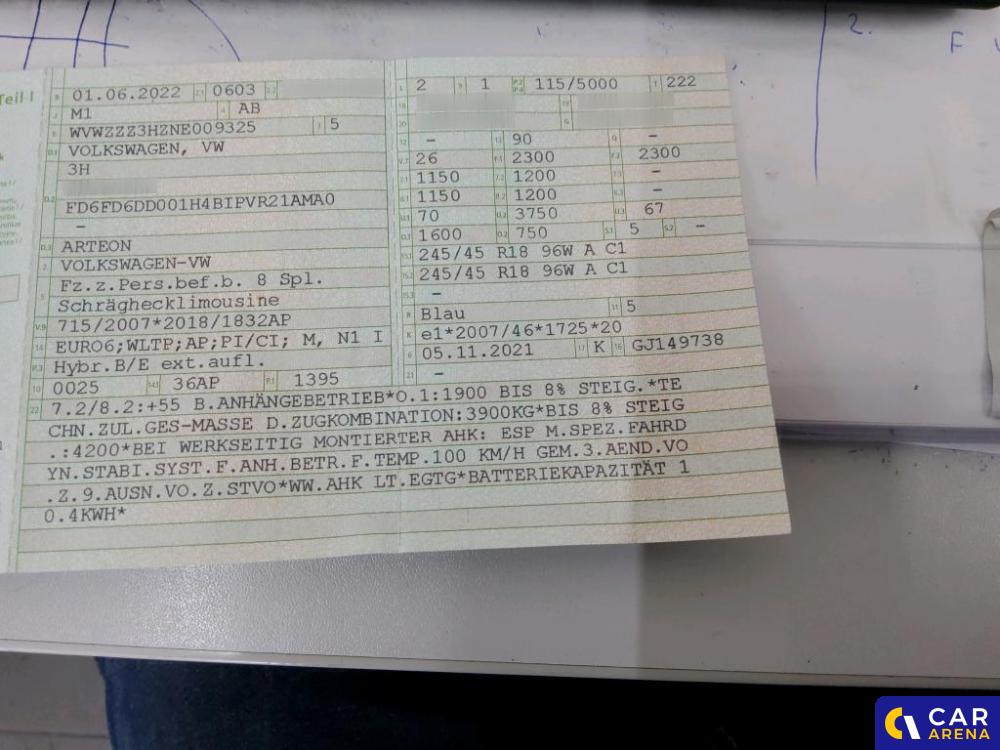 2.
F
Teil I
B 01.06.2022 2.1 0603 2.2
J M1 4 AB
E WVWZZZ3HZNE009325 3 5
D.1 VOLKSWAGEN, VW
3H
D.2
FD6FD6DD001H4BIPVR21AMA0
–
D.3 ARTEON
2 VOLKSWAGEN-VW
5 Fz.z.Pers.bef.b. 8 Spl.
Schräghecklimousine
V.9 715/2007*2018/1832AP
14 EURO6;WLTP;AP;PI/CI; M, N1 I
P.3 Hybr.B/E ext.aufl.
10 0025 14.1 36AP P.1 1395
L 2 9 1 P.2 P.4 115/5000 T 222
18 19
20 G
12 – 13 90 Q –
V.7 26 F.1 2300 F.2 2300
7.1 1150 7.2 1200 7.3 –
8.1 1150 8.2 1200 8.3 –
U.1 70 U.2 3750 U.3 67
O.1 1600 O.2 750 S.1 5 S.2 –
15.1 245/45 R18 96W A C1
15.2 245/45 R18 96W A C1
15.3 –
R Blau 11 5
K e1*2007/46*1725*20
6 05.11.2021 17 K 16 GJ149738
21 –
22 7.2/8.2:+55 B.ANHÄNGEBETRIEB*O.1:1900 BIS 8% STEIG.*TE
CHN.ZUL.GES-MASSE D.ZUGKOMBINATION:3900KG*BIS 8% STEIG
.:4200*BEI WERKSEITIG MONTIERTER AHK: ESP M.SPEZ.FAHRD
YN.STABI.SYST.F.ANH.BETR.F.TEMP.100 KM/H GEM.3.AEND.VO
.Z.9.AUSN.VO.Z.STVO*WW.AHK LT.EGTG*BATTERIEKAPAZITÄT 1
0.4KWH*
CAR
ARENA